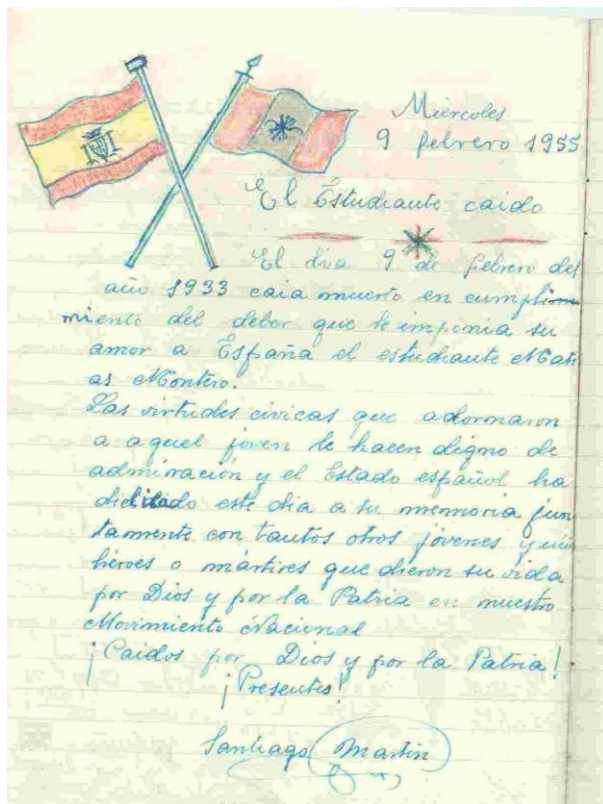 Miércoles
9 febrero 1955
El Estudiante caido
El dia 9 de febrero del
año 1933 caia muerto en cumplim
miento del deber que le imponia su
amor a España el estudiante Mati
as Montero.
Las virtudes civicas que adornaron
a aquel joven le hacen digno de
admiración y el Estado español ha
dedicado este dia a su memoria jun
tamente con tantos otros jovenes y
héroes o mártires que dieron su vida
por Dios y por la Patria en nuestro
Movimiento Nacional
¡Caidos por Dios y por la Patria!
¡Presentes!
Santiago Martin